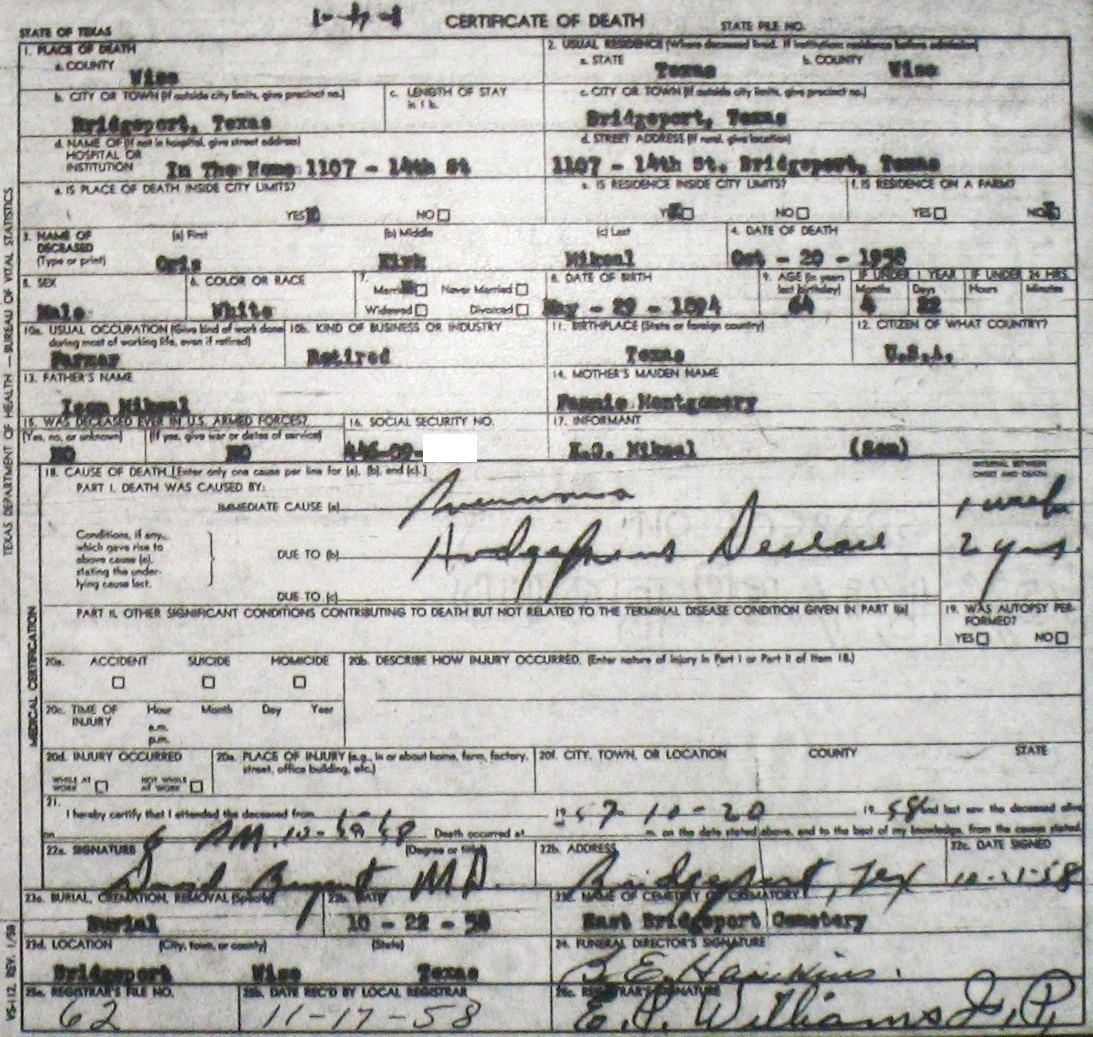 CERTIFICATE OF DEATH STATE FILE NO.
STATE OF TEXAS
1. PLACE OF DEATH 2. USUAL RESIDENCE (Where deceased lived. If institution: residence before admission)
a. COUNTY a. STATE b. COUNTY
Wise Texas Wise
b. CITY OR TOWN (If outside city limits, give precinct no.) c. LENGTH OF STAY in 1 b. c. CITY OR TOWN (If outside city limits, give precinct no.)
Bridgeport, Texas Bridgeport, Texas
d. NAME OF (If not in hospital, give street address) d. STREET ADDRESS (If rural, give location)
HOSPITAL OR
INSTITUTION In The Home 1107 - 14th St 1107 - 14th St. Bridgeport, Texas
e. IS PLACE OF DEATH INSIDE CITY LIMITS? e. IS RESIDENCE INSIDE CITY LIMITS? f. IS RESIDENCE ON A FARM?
YES NO YES NO YES NO
3. NAME OF DECEASED (Type or print) (a) First (b) Middle (c) Last 4. DATE OF DEATH
Kirk Oct - 20 - 1958
5. SEX 6. COLOR OR RACE 7. Married Never Married Widowed Divorced 8. DATE OF BIRTH 9. AGE (In years last birthday) IF UNDER 1 YEAR Months Days IF UNDER 24 HRS. Hours Minutes
Male White May - 29 - 1894 64 4 22
10a. USUAL OCCUPATION (Give kind of work done during most of working life, even if retired) 10b. KIND OF BUSINESS OR INDUSTRY 11. BIRTHPLACE (State or foreign country) 12. CITIZEN OF WHAT COUNTRY?
Farmer Retired Texas U.S.A.
13. FATHER'S NAME 14. MOTHER'S MAIDEN NAME
Fannie Montgomery
15. WAS DECEASED EVER IN U.S. ARMED FORCES? 16. SOCIAL SECURITY NO. 17. INFORMANT
(Yes, no, or unknown) (If yes, give war or dates of service)
NO NO 446-09- (Son)
18. CAUSE OF DEATH [Enter only one cause per line for (a), (b), and (c).] INTERVAL BETWEEN ONSET AND DEATH
PART I. DEATH WAS CAUSED BY:
IMMEDIATE CAUSE (a) 1 week
Conditions, if any, which gave rise to above cause (a), stating the underlying cause last.
DUE TO (b) 2 yrs.
DUE TO (c)
PART II. OTHER SIGNIFICANT CONDITIONS CONTRIBUTING TO DEATH BUT NOT RELATED TO THE TERMINAL DISEASE CONDITION GIVEN IN PART I(a) 19. WAS AUTOPSY PERFORMED?
YES NO
20a. ACCIDENT SUICIDE HOMICIDE 20b. DESCRIBE HOW INJURY OCCURRED. (Enter nature of injury in Part I or Part II of Item 18.)
20c. TIME OF INJURY Hour Month Day Year
a.m.
p.m.
20d. INJURY OCCURRED 20e. PLACE OF INJURY (e.g., in or about home, farm, factory, street, office building, etc.) 20f. CITY, TOWN, OR LOCATION COUNTY STATE
WHILE AT WORK NOT WHILE AT WORK
21.
I hereby certify that I attended the deceased from 1957 10-20 1958 and last saw the deceased alive
on Death occurred at m. on the date stated above, and to the best of my knowledge, from the causes stated.
22a. SIGNATURE (Degree or title) 22b. ADDRESS 22c. DATE SIGNED
David Bryant M.D. Bridgeport, Tex 10-21-58
23a. BURIAL, CREMATION, REMOVAL (Specify) 23b. DATE 23c. NAME OF CEMETERY OR CREMATORY
Burial 10 - 22 - 58 East Bridgeport Cemetery
23d. LOCATION (City, town, or county) (State) 24. FUNERAL DIRECTOR'S SIGNATURE
Bridgeport Wise Texas Hawkins.
25a. REGISTRAR'S FILE NO. 25b. DATE REC'D BY LOCAL REGISTRAR 25c. REGISTRAR'S SIGNATURE
62 11-17-58 E. P. Williams J. P.
TEXAS DEPARTMENT OF HEALTH — BUREAU OF VITAL STATISTICS
MEDICAL CERTIFICATION
VS-112, REV. 1/58